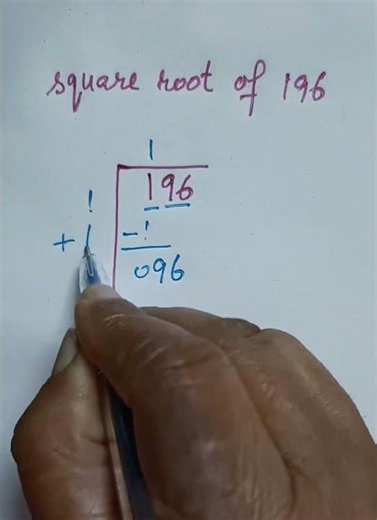 square root of 196
1
1 196
+1 -1
096